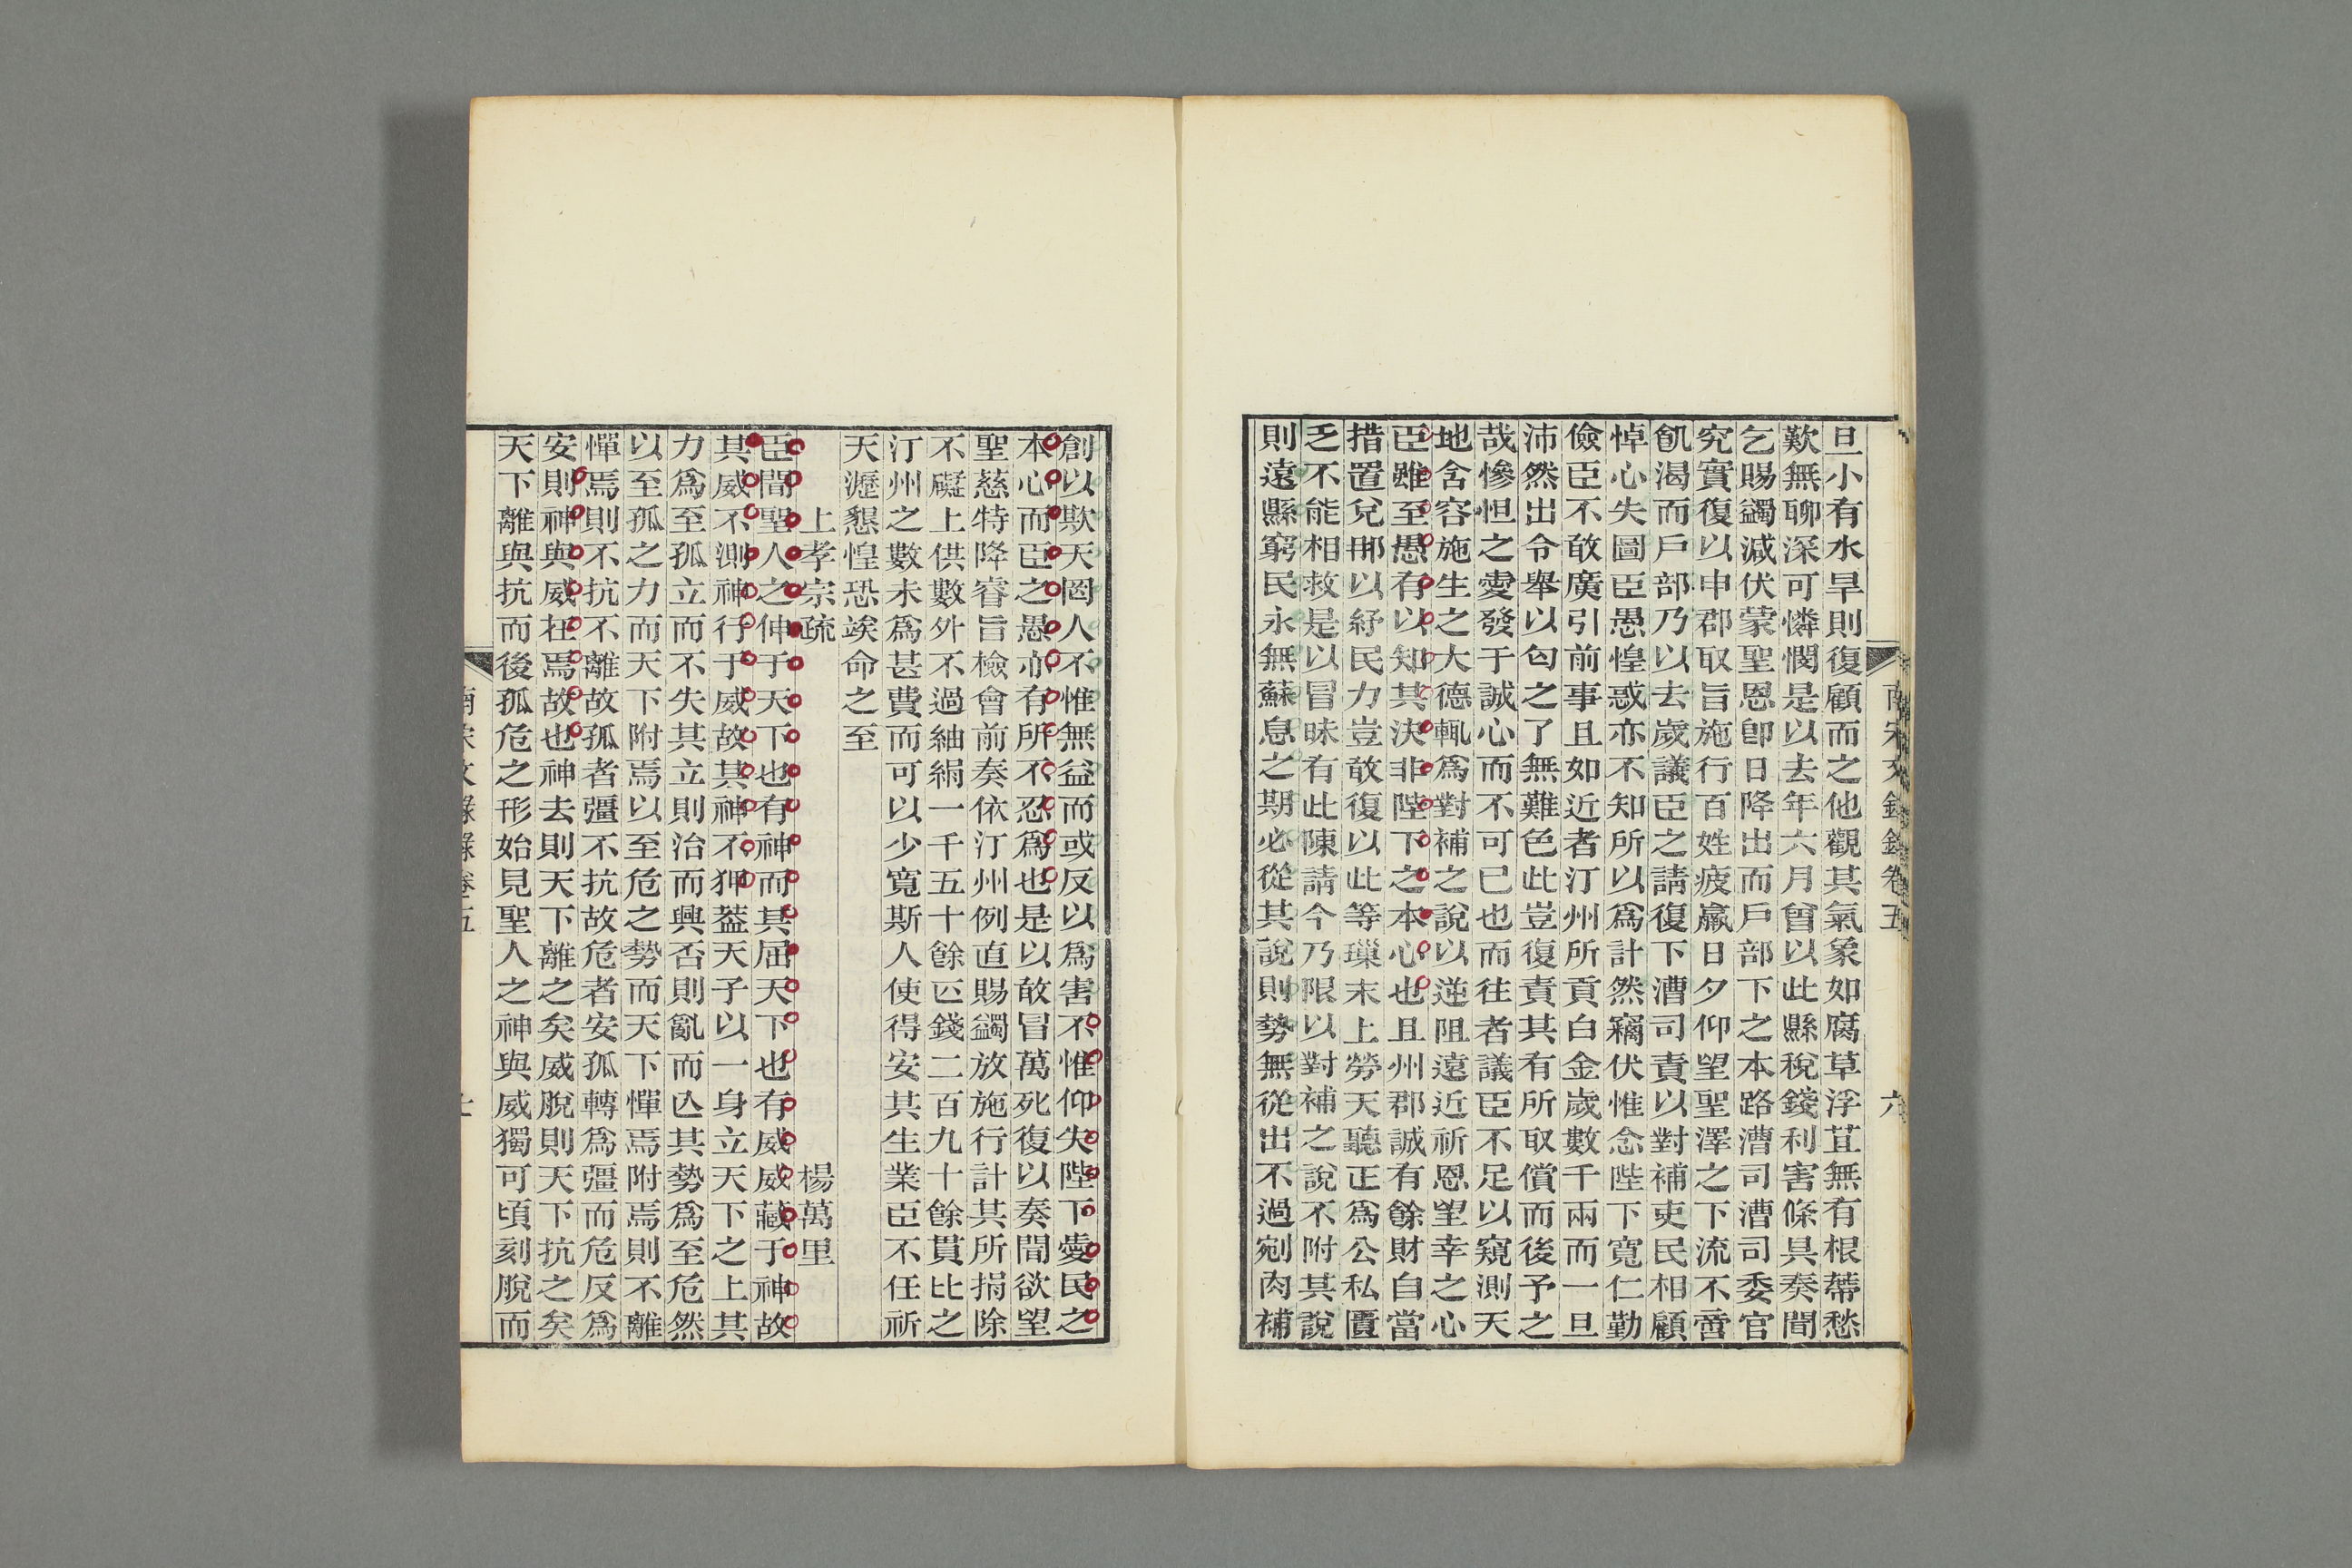 旦小有水旱則復顧而之他觀其氣象如腐草浮苴無有根蔕愁
歎無聊深可憐憫是以去年六月曾以此縣稅錢利害條具奏聞
乞賜蠲減伏蒙聖恩卽日降出而戶部下之本路漕司漕司委官
究實復以申郡取旨施行百姓疲羸日夕仰望聖澤之下流不啻
飢渴而戶部乃以去歲議臣之請復下漕司責以對補吏民相顧
悼心失圖臣愚惶惑亦不知所以爲計然竊伏惟念陛下寬仁勤
儉臣不敢廣引前事且如近者汀州所貢白金歲數千兩而一旦
沛然出令舉以匄之了無難色此豈復責其有所取償而後予之
哉慘怛之愛發于誠心而不可已也而往者議臣不足以窺測天
地含容施生之大德輒爲對補之說以逆阻遠近祈恩望幸之心
臣雖至愚有以知其決非陛下之本心也且州郡誠有餘財自當
措置兌那以紓民力豈敢復以此等璅末上勞天聽正爲公私匱
乏不能相救是以冒昧有此陳請今乃限以對補之說不附其說
則遠縣窮民永無蘇息之期必從其說則勢無從出不過剜肉補
南宋文錄錄卷五
六
創以欺天罔人不惟無益而或反以爲害不惟仰失陛下愛民之
本心而臣之愚亦有所不忍爲也是以敢冒萬死復以奏聞欲望
聖慈特降睿旨檢會前奏依汀州例直賜蠲放施行計其所捐除
不礙上供數外不過紬絹一千五十餘匹錢二百九十餘貫比之
汀州之數未爲甚費而可以少寬斯人使得安其生業臣不任祈
天瀝懇惶恐竢命之至
上孝宗疏
楊萬里
臣聞聖人之伸于天下也有神而其屈天下也有威威藏于神故
其威不測神行于威故其神不狎蓋天子以一身立天下之上其
力爲至孤立而不失其立則治而興否則亂而亾其勢爲至危然
以至孤之力而天下附焉以至危之勢而天下憚焉附焉則不離
憚焉則不抗不離故孤者彊不抗故危者安孤轉爲彊而危反爲
安則神與威在焉故也神去則天下離之矣威脫則天下抗之矣
天下離與抗而後孤危之形始見聖人之神與威獨可頃刻脫而
南宋文錄錄卷五